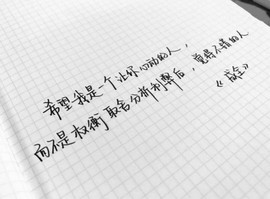 希望我是一个让你心动的人，
而不是权衡取舍分析利弊后，觉得不错的人
《成全》